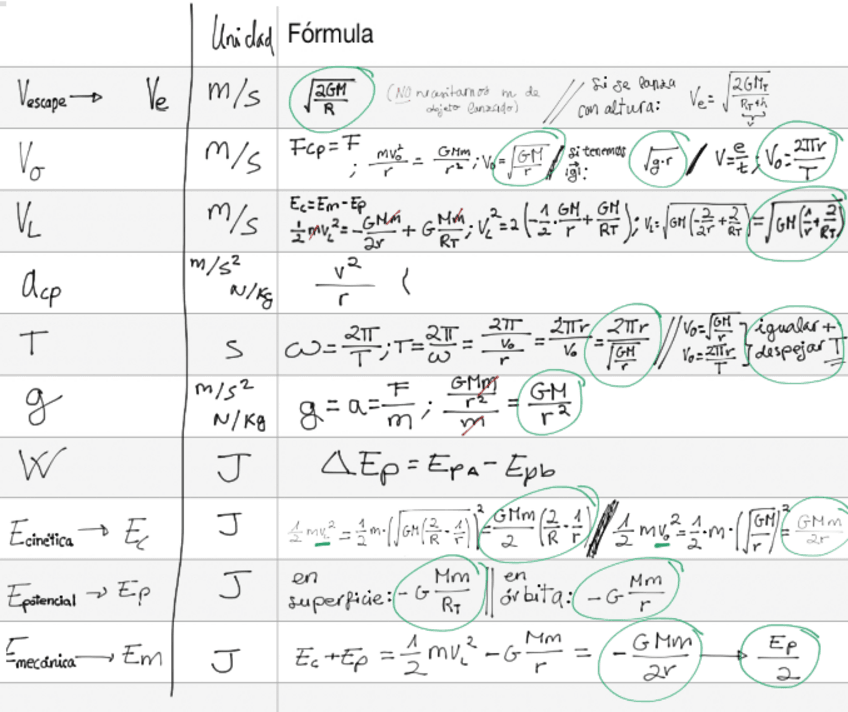 Unidad Fórmula
Vescape → Ve m/s √(2GM/R) (NO necesitamos m de objeto lanzado) // si se lanza con altura: Ve = √(2GM_T/(R_T+h))
V₀ m/s Fcp = F ; mv₀²/r = GMm/r² ; V₀ = √(GM/r) // si tenemos |g|: √(g·r) / V = e/t ; V₀ = 2πr/T
V_L m/s Ec = Em - Ep
½mv_L² = -GMm/2r + G Mm/R_T ; V_L² = 2(-½·GM/r + GM/R_T) ; V_L = √(GM(-2/2r + 2/R_T)) = √(GM(1/r + 2/R_T))
a_cp m/s² N/Kg v²/r
T s ω = 2π/T ; T = 2π/ω = 2π/(v₀/r) = 2πr/v₀ = 2πr/√(GM/r) // V₀ = √(GM/r) V₀ = 2πr/T } igualar + despejar T
g m/s² N/Kg g = a = F/m ; (GMm/r²)/m = GM/r²
W J ΔEp = EpA - Epb
Ecinética → Ec J ½mv_L² = ½m·(√(GM(2/R - 1/r)))² = GMm/2 (2/R - 1/r) // ½mv₀² = ½·m·(√(GM/r))² = GMm/2r
Epotencial → Ep J en superficie: -G Mm/R_T || en órbita: -G Mm/r
Emecánica → Em J Ec + Ep = ½mv_L² - G Mm/r = -GMm/2r → Ep/2